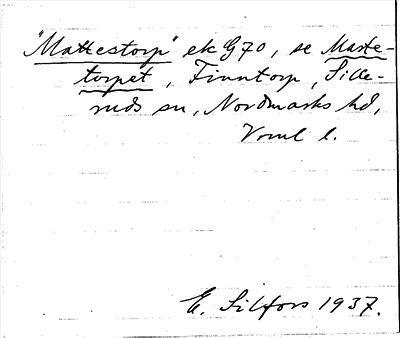 "Mattestorp" ek G70, se Marke-
torpet, Finntorp, Sille-
ruds sn, Nordmarks hd,
Vrml l.
E. Silfors 1937.